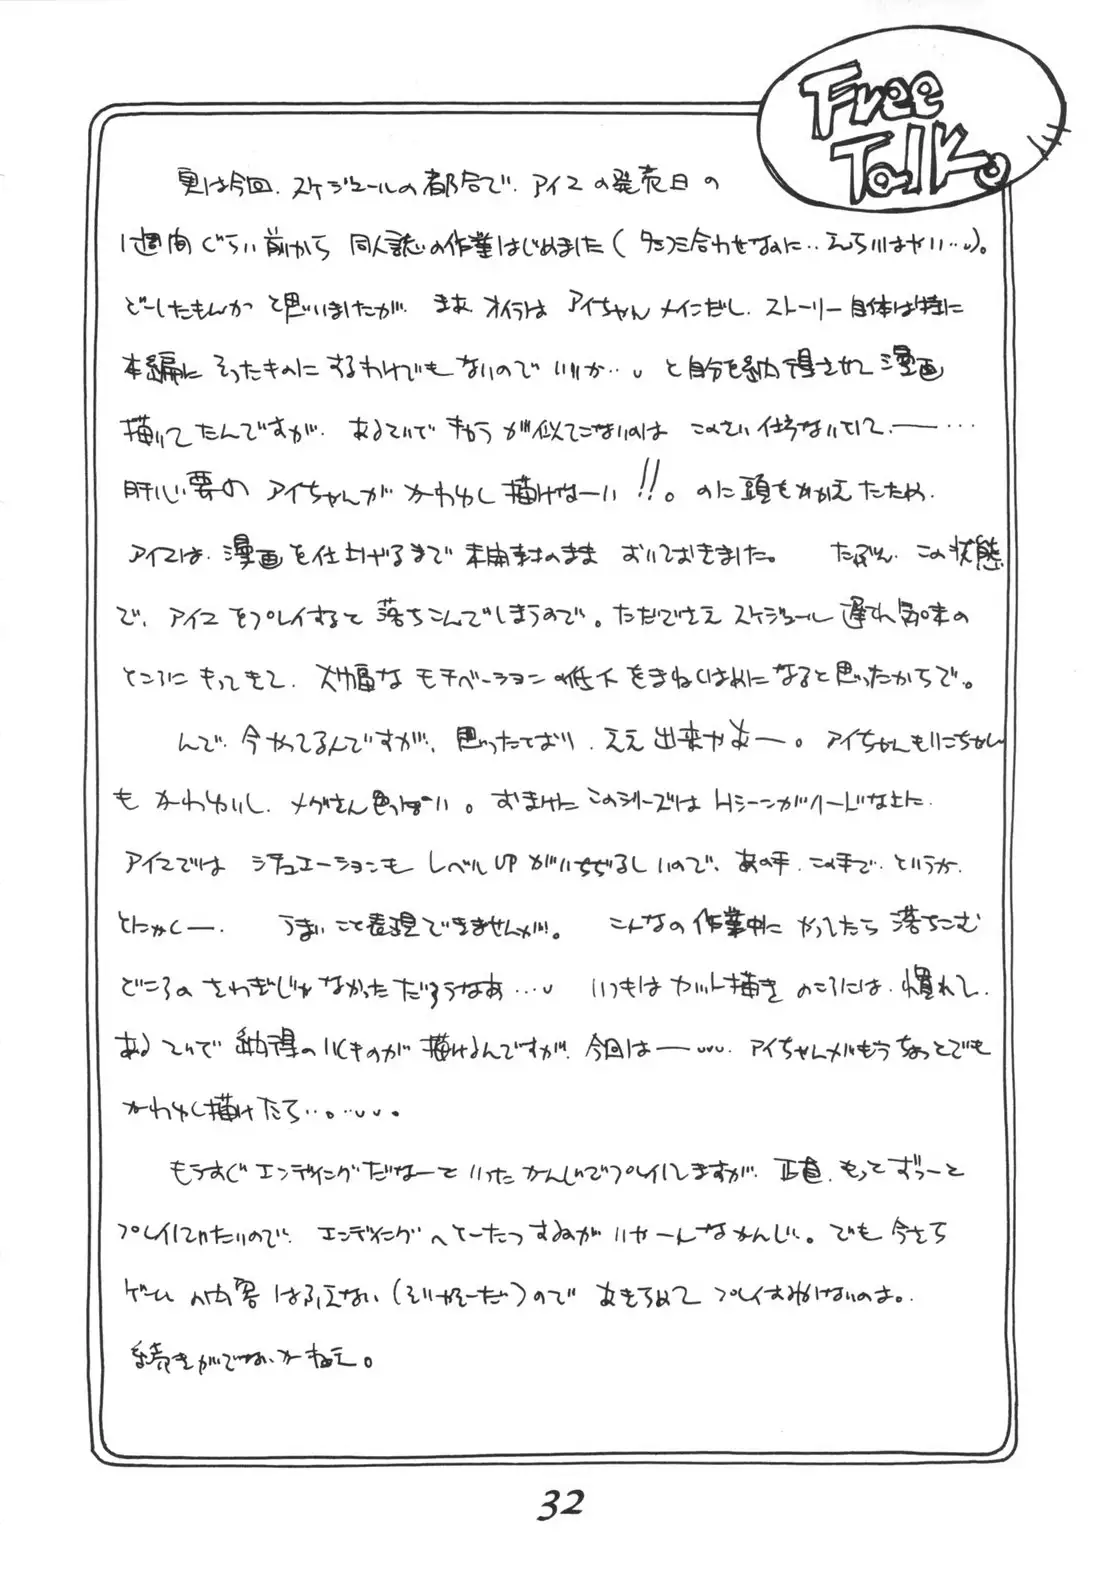 Free
Talk。
実は今回、スケジュールの都合で、アイマの発売日の
1週間ぐらい前から同人誌の作業はじめました(タシミ合わせなのに‥えらいはやい‥)。
どーしたもんかと思いましたが、まあ、オイラはアイちゃんメインだし、ストーリー自体は特に
本編にそったものにするわけでもないのでいいか‥と自分を納得させて漫画
描いてたんですが、あるていどキャラが似てこないのはこのさい仕方ないとして、ー…
肝心要のアイちゃんがかわゆく描けなーい!!。のに頭をかかえたため、
アイマは、漫画を仕上げるまで未開封のままおいておきました。たぶん、この状態
で、アイマをプレイすると落ちこんでしまうので。ただでさえスケジュール遅れ気味の
ところにもってきて、大幅なモチベーションの低下をまねくはめになると思ったからで。
んで、今やってるんですが、思ったとおり、ええ出来やあー。アイちゃんも
もかわゆいし、メグさん色っぽい。おまけにこのシリーズはHシーンがハードな上に、
アイマではシチュエーションもレベルUPがいちぢるしいので、あの手、この手で、というか、
とにかくー、うまいこと表現できませんが。こんなの作業中にやってたら落ちこむ
どころのさわぎじゃなかっただろうなあ…いつもはカット描きのころには、慣れて、
あるていど納得のいくものが描けるんですが、今回はー、アイちゃんがもうちょっとでも
かわゆく描けたら‥。‥。
もうすぐエンディングだなーといったかんじでプレイしてますが、正直、もってずっーと
プレイしていたいので、エンディングへとーたつするのがいやーんなかんじ。でも今さら
ゲームの内容はふえない(そりゃそーだ)のであきらめてプレイ
続きがでないかねえ。
32